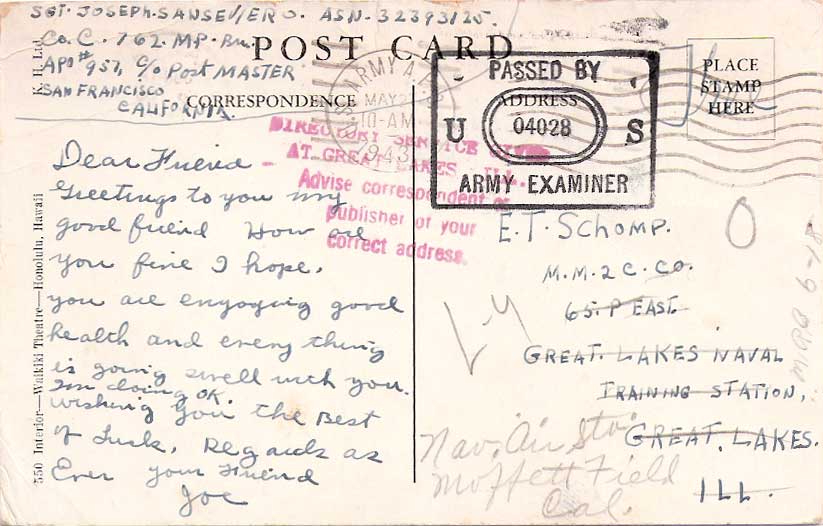 SGT. JOSEPH. SANSEVIERO. ASN. 32393125.
Co. C. 762. MP. Bn.
APO# 957, C/o POST MASTER
SAN FRANCISCO
CALIFORNIA.
POST CARD
CORRESPONDENCE
PLACE
STAMP
HERE
U.S. ARMY
MAY
10-AM
1943
PASSED BY
ADDRESS
U 04028 S
ARMY EXAMINER
DIRECTORY SERVICE GIVEN
AT GREAT LAKES, ILL.
Advise correspondent or
publisher of your
correct address.
Dear Friend -
Greetings to you my
good friend How are
you fine I hope.
you are enyoying good
health and every thing
is going swell with you.
I'm doing OK.
wishing you the Best
of Luck, Regards as
Ever your Friend
Joe
E. T. SCHOMP.
M. M. 2 C. CO.
65. P EAST.
GREAT. LAKES NAVAL
TRAINING STATION,
GREAT. LAKES.
ILL.
Nav. Air Sta.
Moffett Field
Cal.
O
K. H. Ltd.
550 Interior—Waikiki Theatre—Honolulu, Hawaii